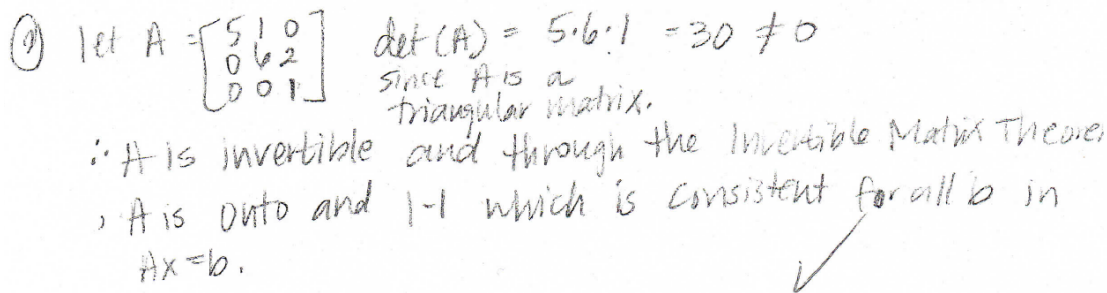 ① let A = [5 1 0 det (A) = 5·6·1 = 30 ≠ 0
0 6 2 since A is a
0 0 1] triangular matrix.
∴ A is invertible and through the Invertible Matrix Theorem
, A is onto and 1-1 which is consistent for all b in
Ax=b.